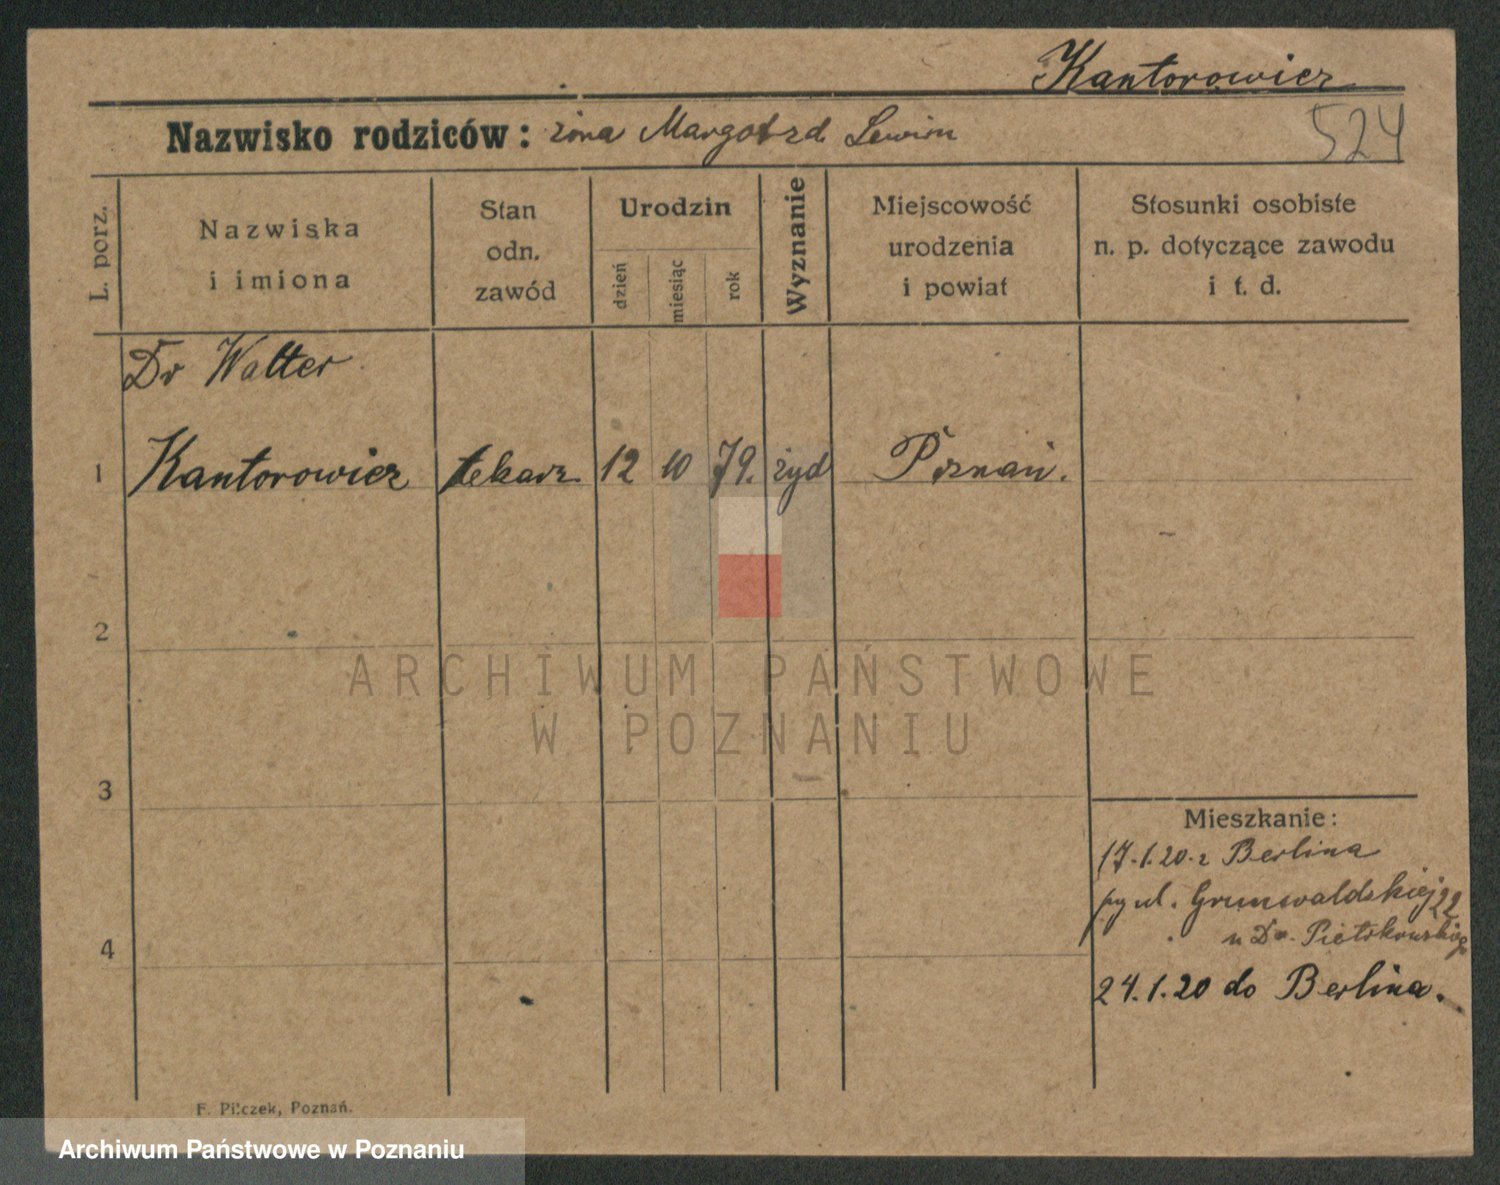 Kantorowicz
Nazwisko rodziców: żona Margot zd. Lewin
524
L. porz.
Nazwiska
i imiona
Stan
odn.
zawód
Urodzin
dzień
miesiąc
rok
Wyznanie
Miejscowość
urodzenia
i powiat
Stosunki osobiste
n. p. dotyczące zawodu
i t. d.
Dr Walter
1 Kantorowicz lekarz 12 10 79. żyd Poznań.
2
3
4
Mieszkanie:
17.1.20. z Berlina
py ul. Grunwaldskiej 22
u Dr. Pietrkowskiego
24.1.20 do Berlina.
F. Pilczek, Poznań.
ARCHIWUM PAŃSTWOWE
W POZNANIU
Archiwum Państwowe w Poznaniu